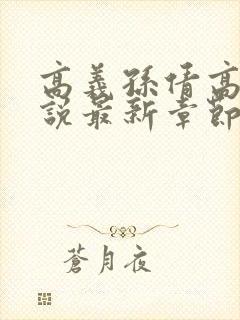 高義孫倩高
說最新章節
蒼月夜